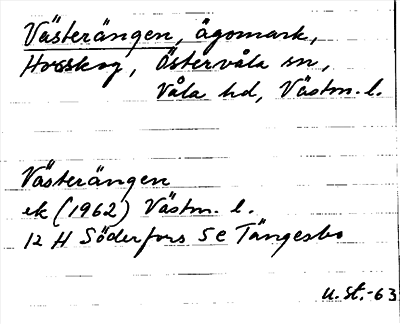 Västerängen, ägomark,
Horsskog, Östervåla sn,
Våla hd, Västm. l.
Västerängen
ek (1962) Västm. l.
12 H Söderfors 5 e Tängesbo
U. St. -63